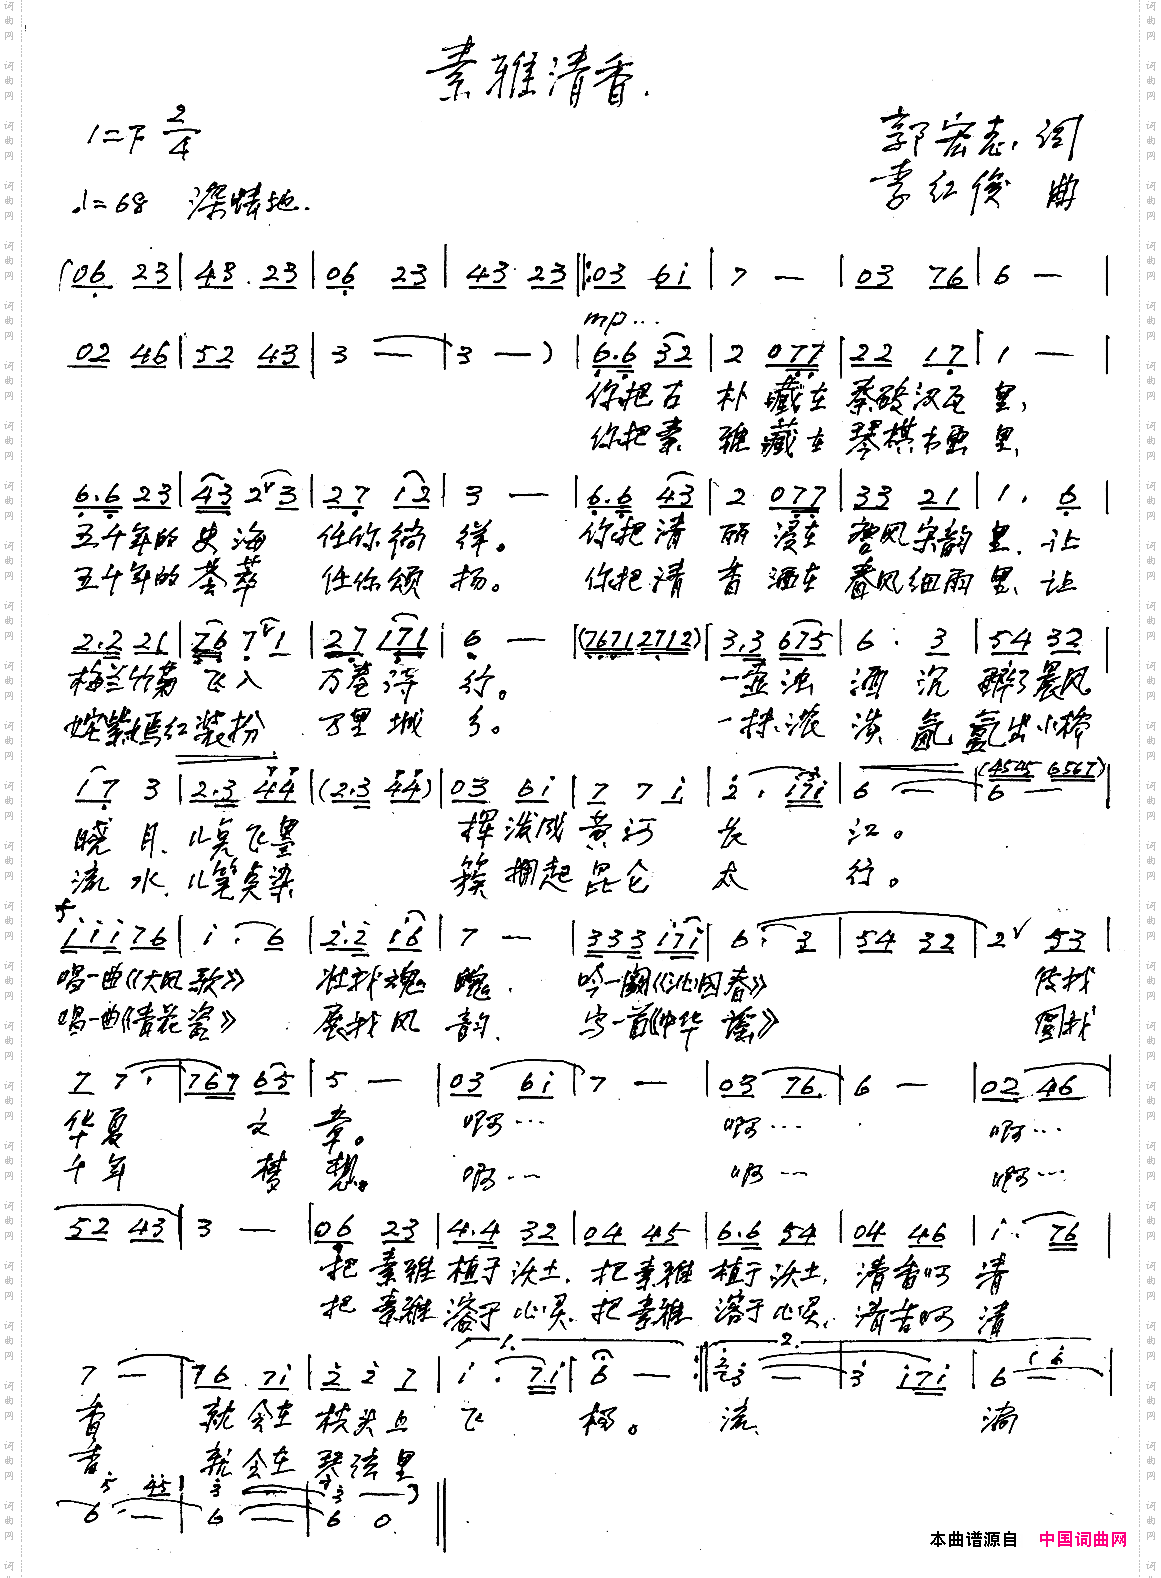 素雅清香.
1=F 2/4
郭宏志 词
♩=68 深情地.
李红俊 曲
(06 23|43 23|06 23|43 23‖:03 6i|7 —|03 76|6 —|
mp...
02 46|52 43|3 —|3 —)|6.6 32|2 077|22 17|1 —|
你把古 朴 藏在 秦砖汉瓦 里,
你把素 雅 藏在 琴棋书画 里,
6.6 23|43 2ˇ3|27 12|3 —|6.6 43|2 077|33 21|1. 6|
五千年的 史海 任你徜 徉。 你把清 丽 浸在 唐风宋韵 里, 让
五千年的 荟萃 任你颂 扬。 你把清 香 洒在 春风细雨 里, 让
2.2 21|76 7ˇ1|27 171|6 —|(7671 2712)|3.3 675|6. 3|54 32|
梅兰竹菊 飞入 万卷诗 行。 一壶浊 酒 沉 醉了晨风
姹紫嫣红 装扮 万里城 乡。 一抹浓 淡 氤 氲出小桥
17 3|2.3 44|(2.3 44)|03 6i|7 7i|2. i7i|6 —|6 —|
(4545 6567)
晓 月, 儿 飞墨 挥 泼成 黄河 长 江。
流 水, 几笔点染 簇 拥起 昆仑 太 行。
f
iii76|i. 6|2.2 i6|7 —|333 i7i|6. 3|54 32|2ˇ 53|
唱一曲《大风歌》 壮我魂 魄, 吟一阙《沁园春》 传我
唱一曲《青花瓷》 展我风 韵, 写一首《中华 谣》 圆我
7 7.|767 65|5 —|03 6i|7 —|03 76|6 —|02 46|
华夏 文 章。 啊… 啊… 啊…
千年 梦 想。 啊… 啊… 啊…
52 43|3 —|06 23|4.4 32|04 45|6.6 54|04 46|i. 76|
把 素雅 植于沃土, 把 素雅 植于沃土, 清香啊 清
把 素雅 溶于心灵, 把 素雅 溶于心灵, 清香啊 清
1. 2.
7 —|76 7i|2 2 7|i. 7i|6 —:‖23 —|3 i7i|6 —|
i6
香 就会在 枝头上 飞 扬。 流 淌
香 就会在 琴弦里
5 45|3 —|3 —3
6. —|6 —|6 0‖
本曲谱源自 中国词曲网
词曲网